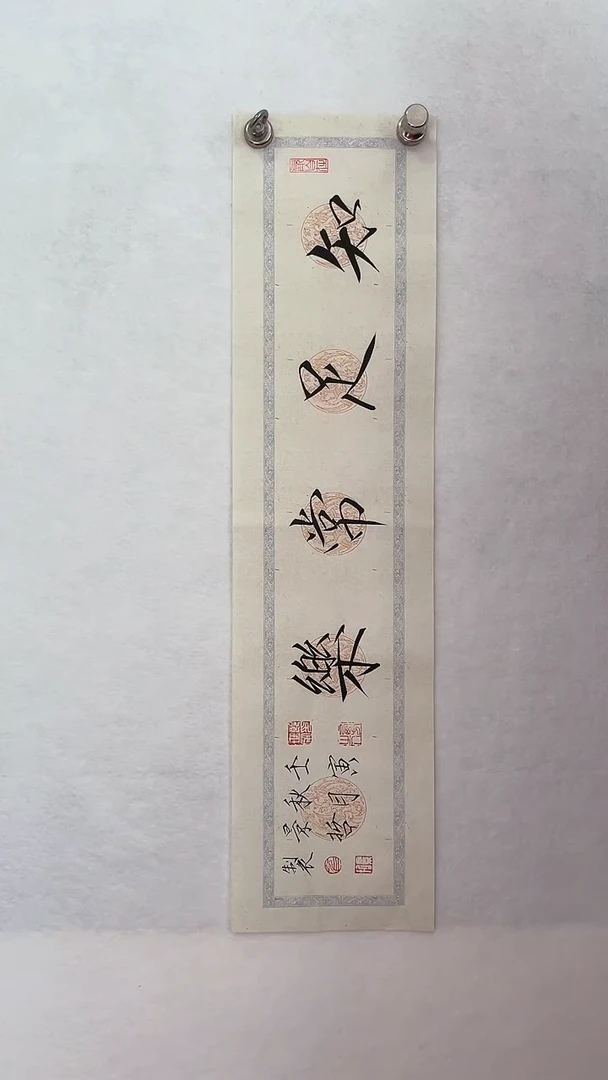 知足常樂
壬寅
秋月
景哲
製